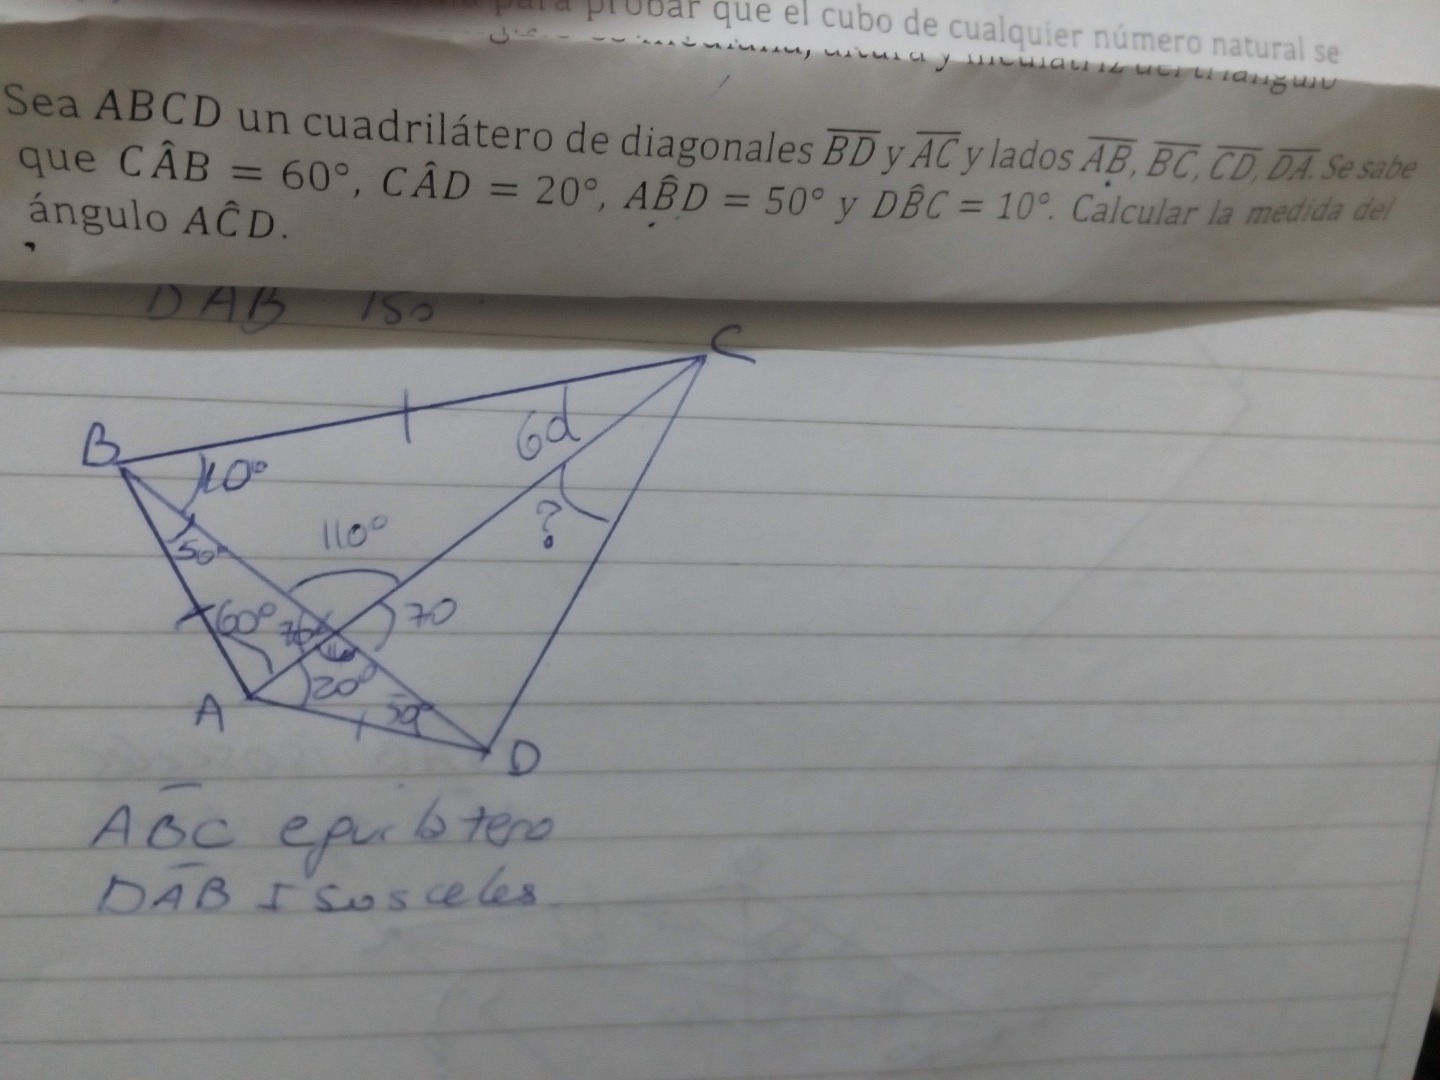 para probar que el cubo de cualquier número natural se
Sea ABCD un cuadrilátero de diagonales BD y AC y lados AB, BC, CD, DA. Se sabe
que CÂB = 60°, CÂD = 20°, AB̂D = 50° y DB̂C = 10°. Calcular la medida del
ángulo AĈD.
DAB Iso
C
B
6d
10°
?
50°
110°
60°
70
70
20°
A
50°
D
ABC equilatero
DAB Isosceles